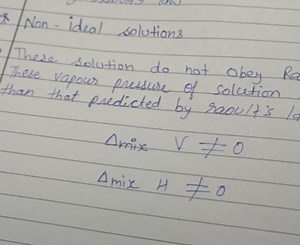 * Non-ideal solutions
These solution do not obey Ra
These vapour pressure of solution
than that predicted by raoult's la
Δmix V ≠ 0
Δmix H ≠ 0